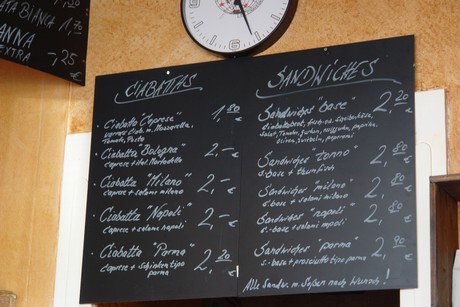 TA BIANCA 1,70
ANNA
EXTRA -,25
CIABATTAS
Ciabatta "Caprese" 1,80 €
warmes Ciab. m. Mozzarella,
Tomate, Pesto
Ciabatta "Bologna" 2,- €
caprese + ital. Mortadella
Ciabatta "Milano" 2,- €
caprese + salami milano
Ciabatta "Napoli" 2,- €
caprese + salami napoli
Ciabatta "Parma" 2,20 €
caprese + schinken tipo
parma
SANDWICHES
Sandwiches "base" 2,20 €
Salat, Tomate, paprika,
oliven, zwiebeln, peperoni
Sandwiches "tonno" 2,80 €
s. base + thunfisch
Sandwiches "milano" 2,80 €
s. base + salami milano
Sandwiches "napoli" 2,80 €
s. base + salami napoli
Sandwiches "parma" 2,90 €
s. base + prosciutto tipo parma
Alle Sandw. m. Soßen nach Wunsch!